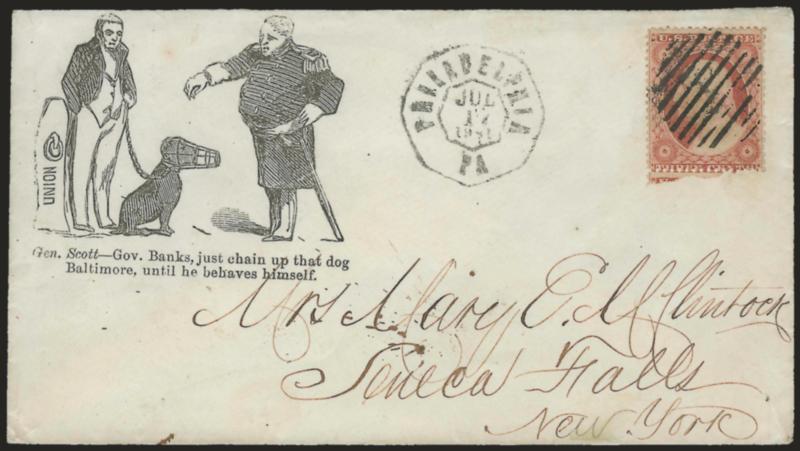 UNION
Gen. Scott—Gov. Banks, just chain up that dog
Baltimore, until he behaves himself.
PHILADELPHIA
JUL
17
1861
PA
Mrs Mary E. McClintock
Seneca Falls
New York